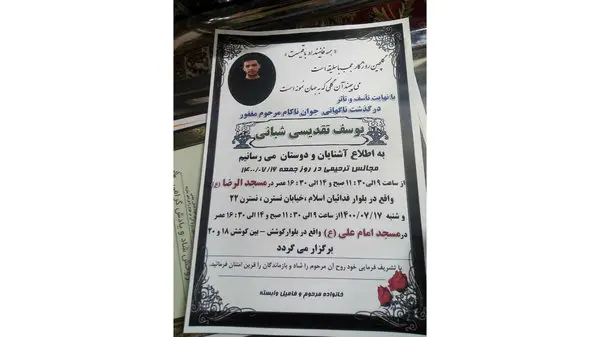 «همه فانیند او باقیست»
گلچین روزگار عجب باسلیقه است
می‌چیند آن گلی که به جهان نمونه است
با نهایت تاسف و تاثر
درگذشت ناگهانی جوان ناکام مرحوم مغفور
یوسف تقدیسی شبانی
به اطلاع آشنایان و دوستان می رسانیم
مجالس ترحیمی در روز جمعه ۱۴۰۰/۰۷/۱۶
از ساعت ۹ الی ۱۱:۳۰ صبح و ۱۴ الی ۱۶:۳۰ عصر در مسجد الرضا (ع)
واقع در بلوار فدائیان اسلام ،خیابان نسترن ، نسترن ۲۲
و شنبه ۱۴۰۰/۰۷/۱۷ از ساعت ۹ الی ۱۱:۳۰ صبح و ۱۴ الی ۱۶:۳۰ عصر
در مسجد امام علی (ع) واقع در بلوار کوشش - بین کوشش ۱۸ و ۲۰
برگزار می گردد
با تشریف فرمایی خود روح آن مرحوم را شاد و بازماندگان را قرین امتنان فرمائید.
خانواده مرحوم و فامیل وابسته